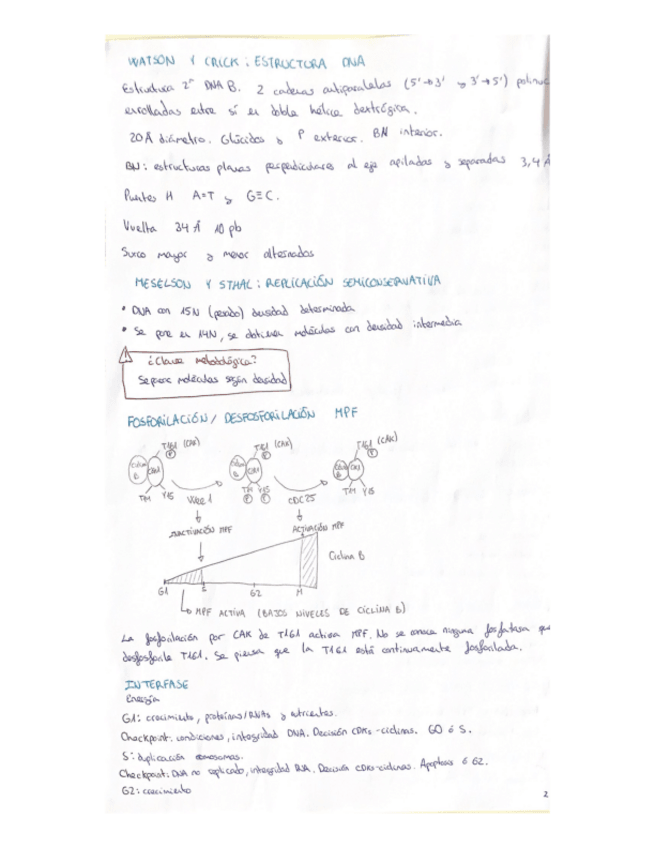 WATSON Y CRICK: ESTRUCTURA DNA
Estructura 2ª DNA B. 2 cadenas antiparalelas (5'→3' y 3'→5') polinuc
enrolladas entre sí en doble hélice dextrógira.
20 Å diámetro. Glúcidos y P exterior. BN interior.
BN: estructuras planas perpendiculares al eje apiladas y separadas 3,4 Å
Puentes H A=T y G≡C.
Vuelta 34 Å 10 pb
Surco mayor y menor alternados
MESELSON Y STHAL: REPLICACIÓN SEMICONSERVATIVA
• DNA con 15N (pesado) densidad determinada
• Se pone en 14N, se obtienen moléculas con densidad intermedia
¿Clave metodológica?
Separar moléculas según densidad
FOSFORILACIÓN / DESFOSFORILACIÓN MPF
T161 (CAK) T161 (CAK) T161 (CAK)
P P P
Ciclina B CDK1 Ciclina B CDK1
T14 Y15 T14 Y15 T14 Y15
P P
Wee1 CDC25
INACTIVACIÓN MPF ACTIVACIÓN MPF
Ciclina B
G1 S G2 M
MPF ACTIVA (BAJOS NIVELES DE CICLINA B)
La fosforilación por CAK de T161 activa MPF. No se conoce ninguna fosfatasa que
desfosforile T161. Se piensa que la T161 está continuamente fosforilada.
INTERFASE
Energía
G1: crecimiento, proteínas/RNAs y nutrientes.
Checkpoint: condiciones, integridad DNA. Decisión CDKs-ciclinas. G0 ó S.
S: duplicación cromosomas.
Checkpoint: DNA no replicado, integridad DNA. Decisión CDKs-ciclinas. Apoptosis ó G2.
G2: crecimiento
2